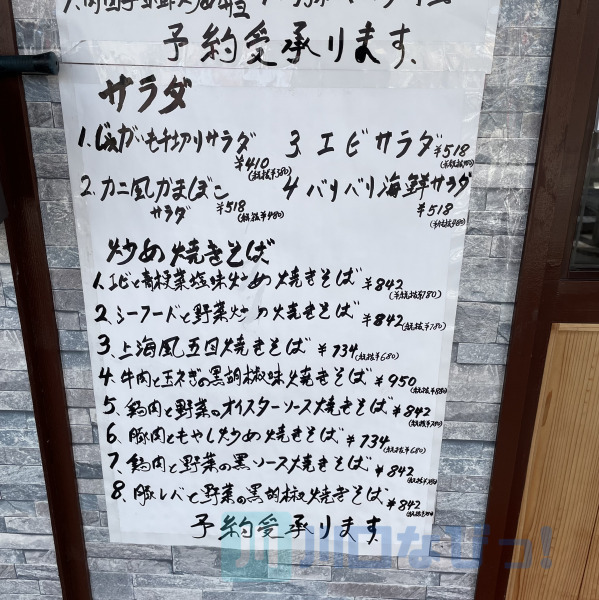 予約受承ります.
サラダ
1. じゃがいも千切りサラダ
¥410
(税抜¥380)
2. カニ風かまぼこ
サラダ ¥518
(税抜¥480)
3. エビサラダ ¥518
4 バリバリ海鮮サラダ
¥518
炒め焼きそば
1. エビと青梗菜塩味炒め焼きそば ¥842
(税抜¥780)
2. シーフードと野菜炒め焼きそば ¥842
(税抜¥780)
3. 上海風五目焼きそば ¥734
(税抜¥680)
4. 牛肉と玉ネギの黒胡椒味焼きそば ¥950
(税抜¥880)
5、鶏肉と野菜のオイスターソース焼きそば ¥842
(税抜¥780)
6、豚肉ともやし炒め焼きそば ¥734
(税抜¥680)
7、鶏肉と野菜の黒ソース焼きそば ¥842
8、豚レバと野菜の黒胡椒焼きそば ¥842
予約受承ります.
川口なびっ!